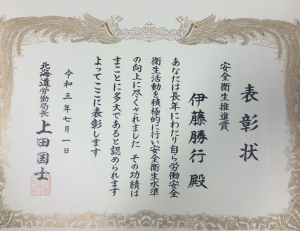 表彰状
安全衛生推進賞
伊藤勝行 殿
あなたは長年にわたり自ら労働安全
衛生活動を積極的に行い安全衛生水準
の向上に尽くされました その功績は
まことに多大であると認められます
よってここに表彰します
令和三年七月一日
北海道労働局長
上田国士